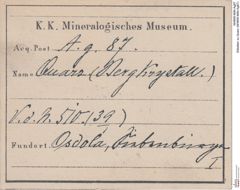 K. K. Mineralogisches Museum.
Acq. Post A. g. 87.
Name Quarz (Bergkrystall.)
V. d. N. 510 (39)
Fundort. Osdola, Siebenbürgen
I